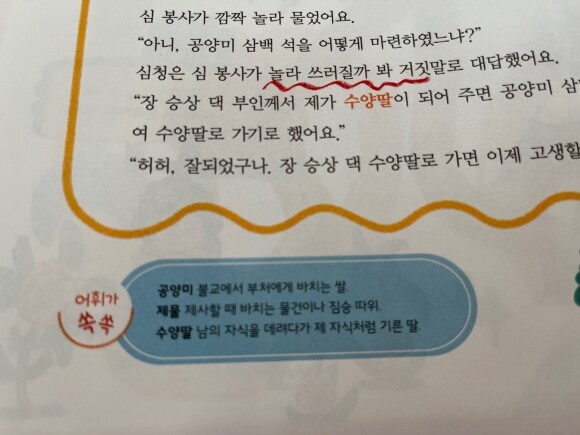 심 봉사가 깜짝 놀라 물었어요.
“아니, 공양미 삼백 석을 어떻게 마련하였느냐?”
심청은 심 봉사가 놀라 쓰러질까 봐 거짓말로 대답했어요.
“장 승상 댁 부인께서 제가 수양딸이 되어 주면 공양미 삼
여 수양딸로 가기로 했어요.”
“허허, 잘되었구나. 장 승상 댁 수양딸로 가면 이제 고생할
어휘가
쏙쏙
공양미 불교에서 부처에게 바치는 쌀.
제물 제사할 때 바치는 물건이나 짐승 따위.
수양딸 남의 자식을 데려다가 제 자식처럼 기른 딸.